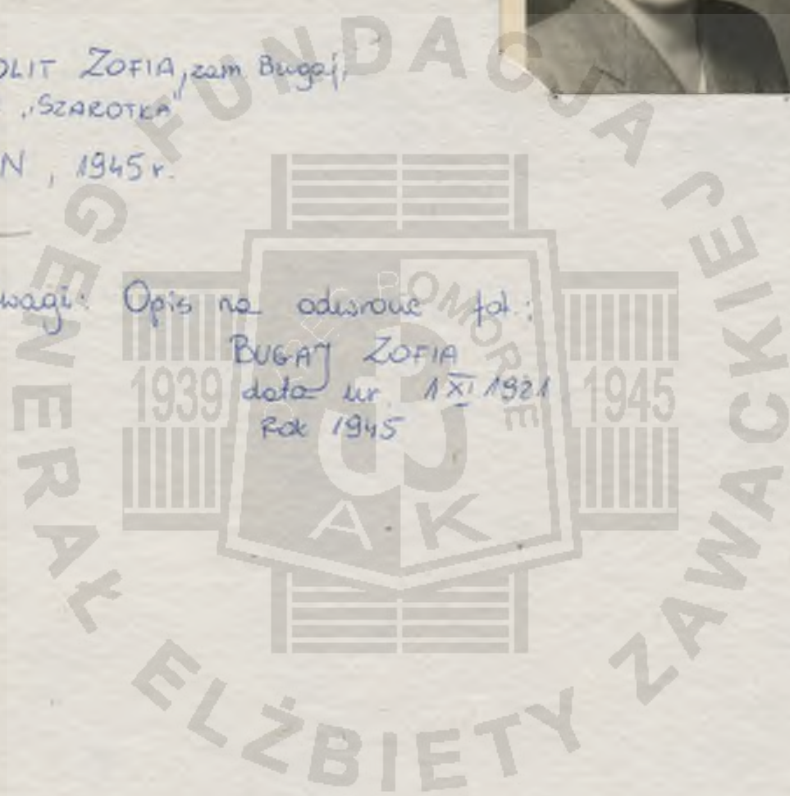 OLIT ZOFIA, zam Bugaj,
„SZAROTKA"
N, 1945 r.
wagi: Opis na odwrocie fot.:
BUGAJ ZOFIA
data ur 1 XI 1921
Rok 1945
FUNDACJA GENERAŁ ELŻBIETY ZAWACKIEJ
1939
1945
OKRĘG POMORZE
AK